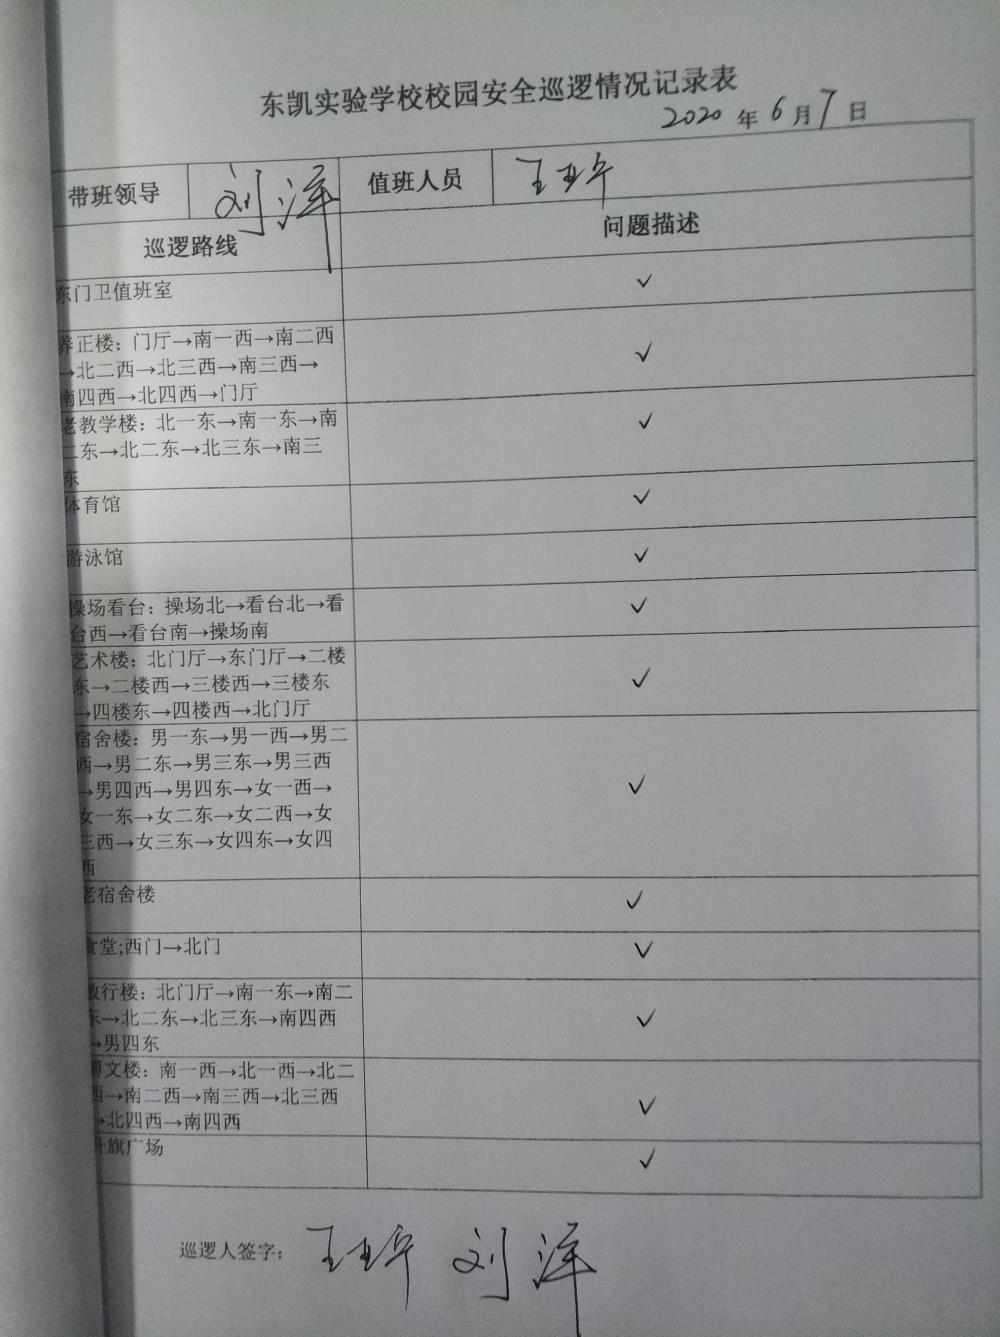 东凯实验学校校园安全巡逻情况记录表
2020 年 6 月 7 日
带班领导 刘洋 值班人员 王玉华
巡逻路线 问题描述
东门卫值班室 ✓
养正楼：门厅→南一西→南二西 ✓
→北二西→北三西→南三西→
南四西→北四西→门厅
老教学楼：北一东→南一东→南 ✓
二东→北二东→北三东→南三
东
体育馆 ✓
游泳馆 ✓
操场看台：操场北→看台北→看 ✓
台西→看台南→操场南
艺术楼：北门厅→东门厅→二楼
东→二楼西→三楼西→三楼东 ✓
→四楼东→四楼西→北门厅
宿舍楼：男一东→男一西→男二
西→男二东→男三东→男三西
→男四西→男四东→女一西→ ✓
女一东→女二东→女二西→女
三西→女三东→女四东→女四
西
老宿舍楼 ✓
食堂;西门→北门 ✓
敏行楼：北门厅→南一东→南二
东→北二东→北三东→南四西 ✓
→男四东
博文楼：南一西→北一西→北二
西→南二西→南三西→北三西 ✓
→北四西→南四西
升旗广场 ✓
巡逻人签字： 王玉华 刘洋